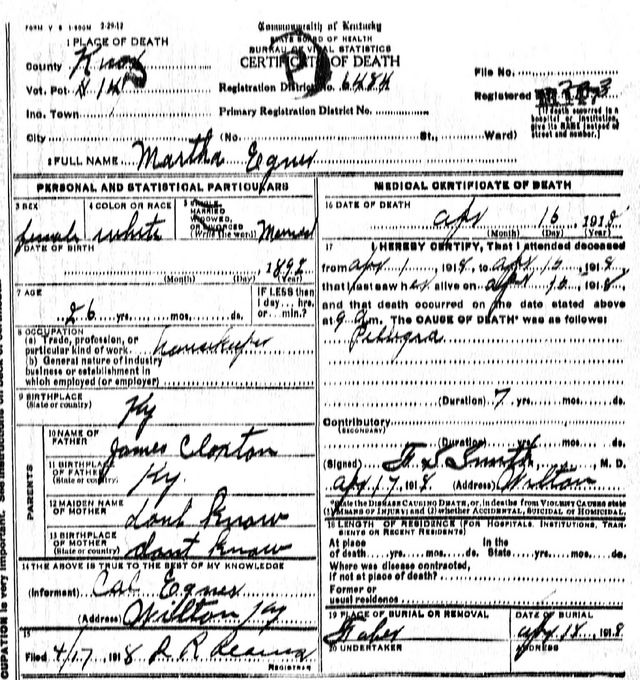 FORM V S 1-500M 2-29-12
Commonwealth of Kentucky
STATE BOARD OF HEALTH
BUREAU OF VITAL STATISTICS
CERTIFICATE OF DEATH
1 PLACE OF DEATH
County Knox
Vot. Pct
Registration District No. 6484
File No.
Registered
Inc. Town
Primary Registration District No.
[If death occurred in a hospital or institution, give its NAME instead of street and number.]
City (No. St., Ward)
2 FULL NAME Martha Egner
PERSONAL AND STATISTICAL PARTICULARS
3 SEX female
4 COLOR OR RACE white
5 SINGLE MARRIED WIDOWED, OR DIVORCED (Write the word) Married
DATE OF BIRTH
, 1892
(Month) (Day) (Year)
7 AGE
26 yrs. mos. ds.
IF LESS than 1 day... hrs. or... min.?
8 OCCUPATION
(a) Trade, profession, or particular kind of work housekeeper
(b) General nature of industry
business or establishment in
which employed (or employer)
9 BIRTHPLACE (State or country) Ky
PARENTS
10 NAME OF FATHER James Cloxton
11 BIRTHPLACE OF FATHER (State or country) Ky.
12 MAIDEN NAME OF MOTHER dont know
13 BIRTHPLACE OF MOTHER (State or country) dont know
14 THE ABOVE IS TRUE TO THE BEST OF MY KNOWLEDGE
(Informant) Cal Egner
(Address) Wilton Ky
15
Filed 4/17, 1918
REGISTRAR
MEDICAL CERTIFICATE OF DEATH
16 DATE OF DEATH
apr 16 1918
(Month) (Day) (Year)
17 I HEREBY CERTIFY, That I attended deceased
from apr 1, 1918, to apr 15, 1918
that I last saw her alive on apr 15, 1918
and that death occurred on the date stated above
at 9 am. The CAUSE OF DEATH* was as follows:
Pellagra
(Duration) 7 yrs. mos. ds.
Contributory
(SECONDARY)
(Duration) yrs. mos. ds.
(Signed) F S Smith, M. D.
apr 17, 1918 (Address) Wilton
*State the DISEASE CAUSING DEATH, or, in deaths from VIOLENT CAUSES state
(1) MEANS OF INJURY; and (2) whether ACCIDENTAL, SUICIDAL or HOMICIDAL.
18 LENGTH OF RESIDENCE (FOR HOSPITALS, INSTITUTIONS, TRANSIENTS OR RECENT RESIDENTS)
At place of death yrs. mos. ds. In the State yrs. mos. ds.
Where was disease contracted,
if not at place of death?
Former or
usual residence
19 PLACE OF BURIAL OR REMOVAL
DATE OF BURIAL
apr 18, 1918
20 UNDERTAKER
ADDRESS